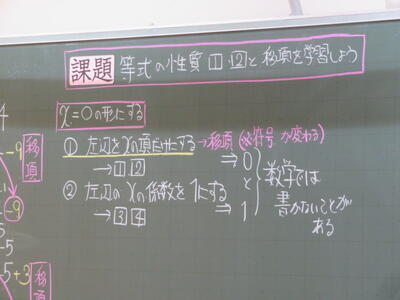 課題 等式の性質 1 2 と移項を学習しよう
x=○の形にする
① 左辺をxの項だけにする → 移項(※符号が変わる)
→ 1 2
⇒ 0
② 左辺のxの係数を1にする
→ 3 4
⇒ 1
と
数学では
書かないことが
ある
4
-9
移項
-9
-5
-5+3
移項